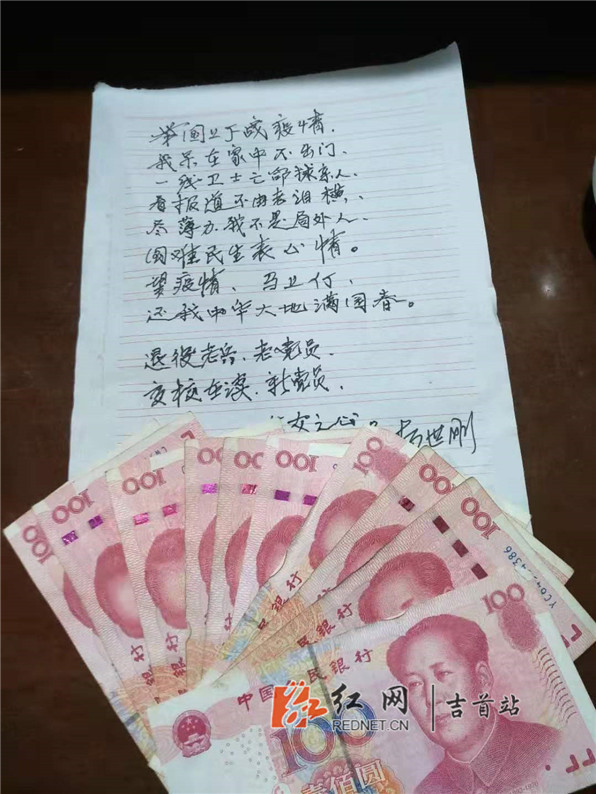 举国上下战疫情,
我呆在家中不出门、
一线卫士亡命救亲人、
看报道不由老泪横、
尽薄力、我不是局外人、
国难民生表心情。
望疫情、马上停、
还我中华大地满园春。
退役老兵、老党员、
在读、新党员、
女之心
世刚
100
100
100
100
100
100
100
100
100
100
YC04 4386
100
中国人民银行
100
壹佰圆
红网
REDNET.CN
吉首站